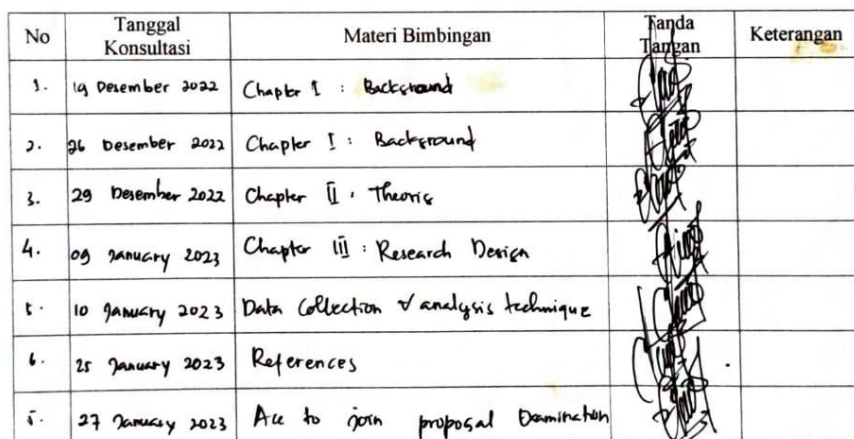 No Tanggal Konsultasi Materi Bimbingan Tanda Tangan Keterangan
1. 19 Desember 2022 Chapter I : Background
2. 26 Desember 2022 Chapter I : Background
3. 29 Desember 2022 Chapter II : Theoris
4. 09 January 2023 Chapter III : Research Design
5. 10 January 2023 Data Collection & analysis technique
6. 25 January 2023 References
5. 27 January 2023 Acc to join proposal Examination